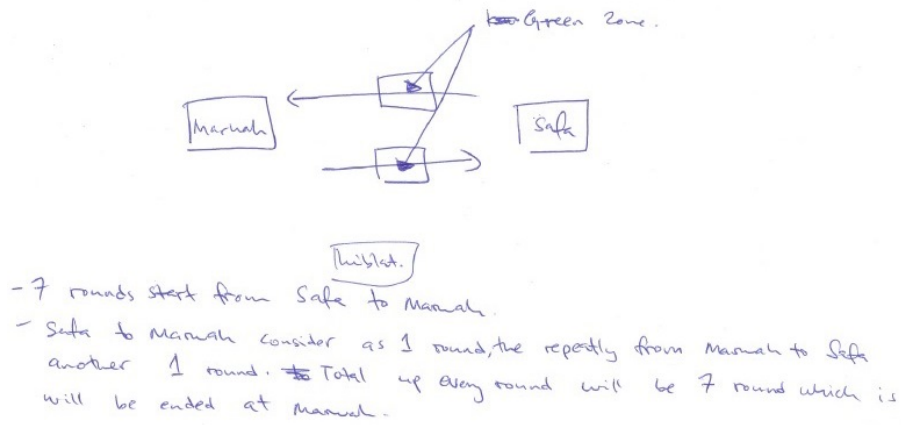 Green Zone.
Marwah
Safa
kiblat.
- 7 rounds start from Safa to Marwah.
- Safa to Marwah consider as 1 round, the repeatly from Marwah to Safa
another 1 round. Total up every round will be 7 round which is
will be ended at Marwah.